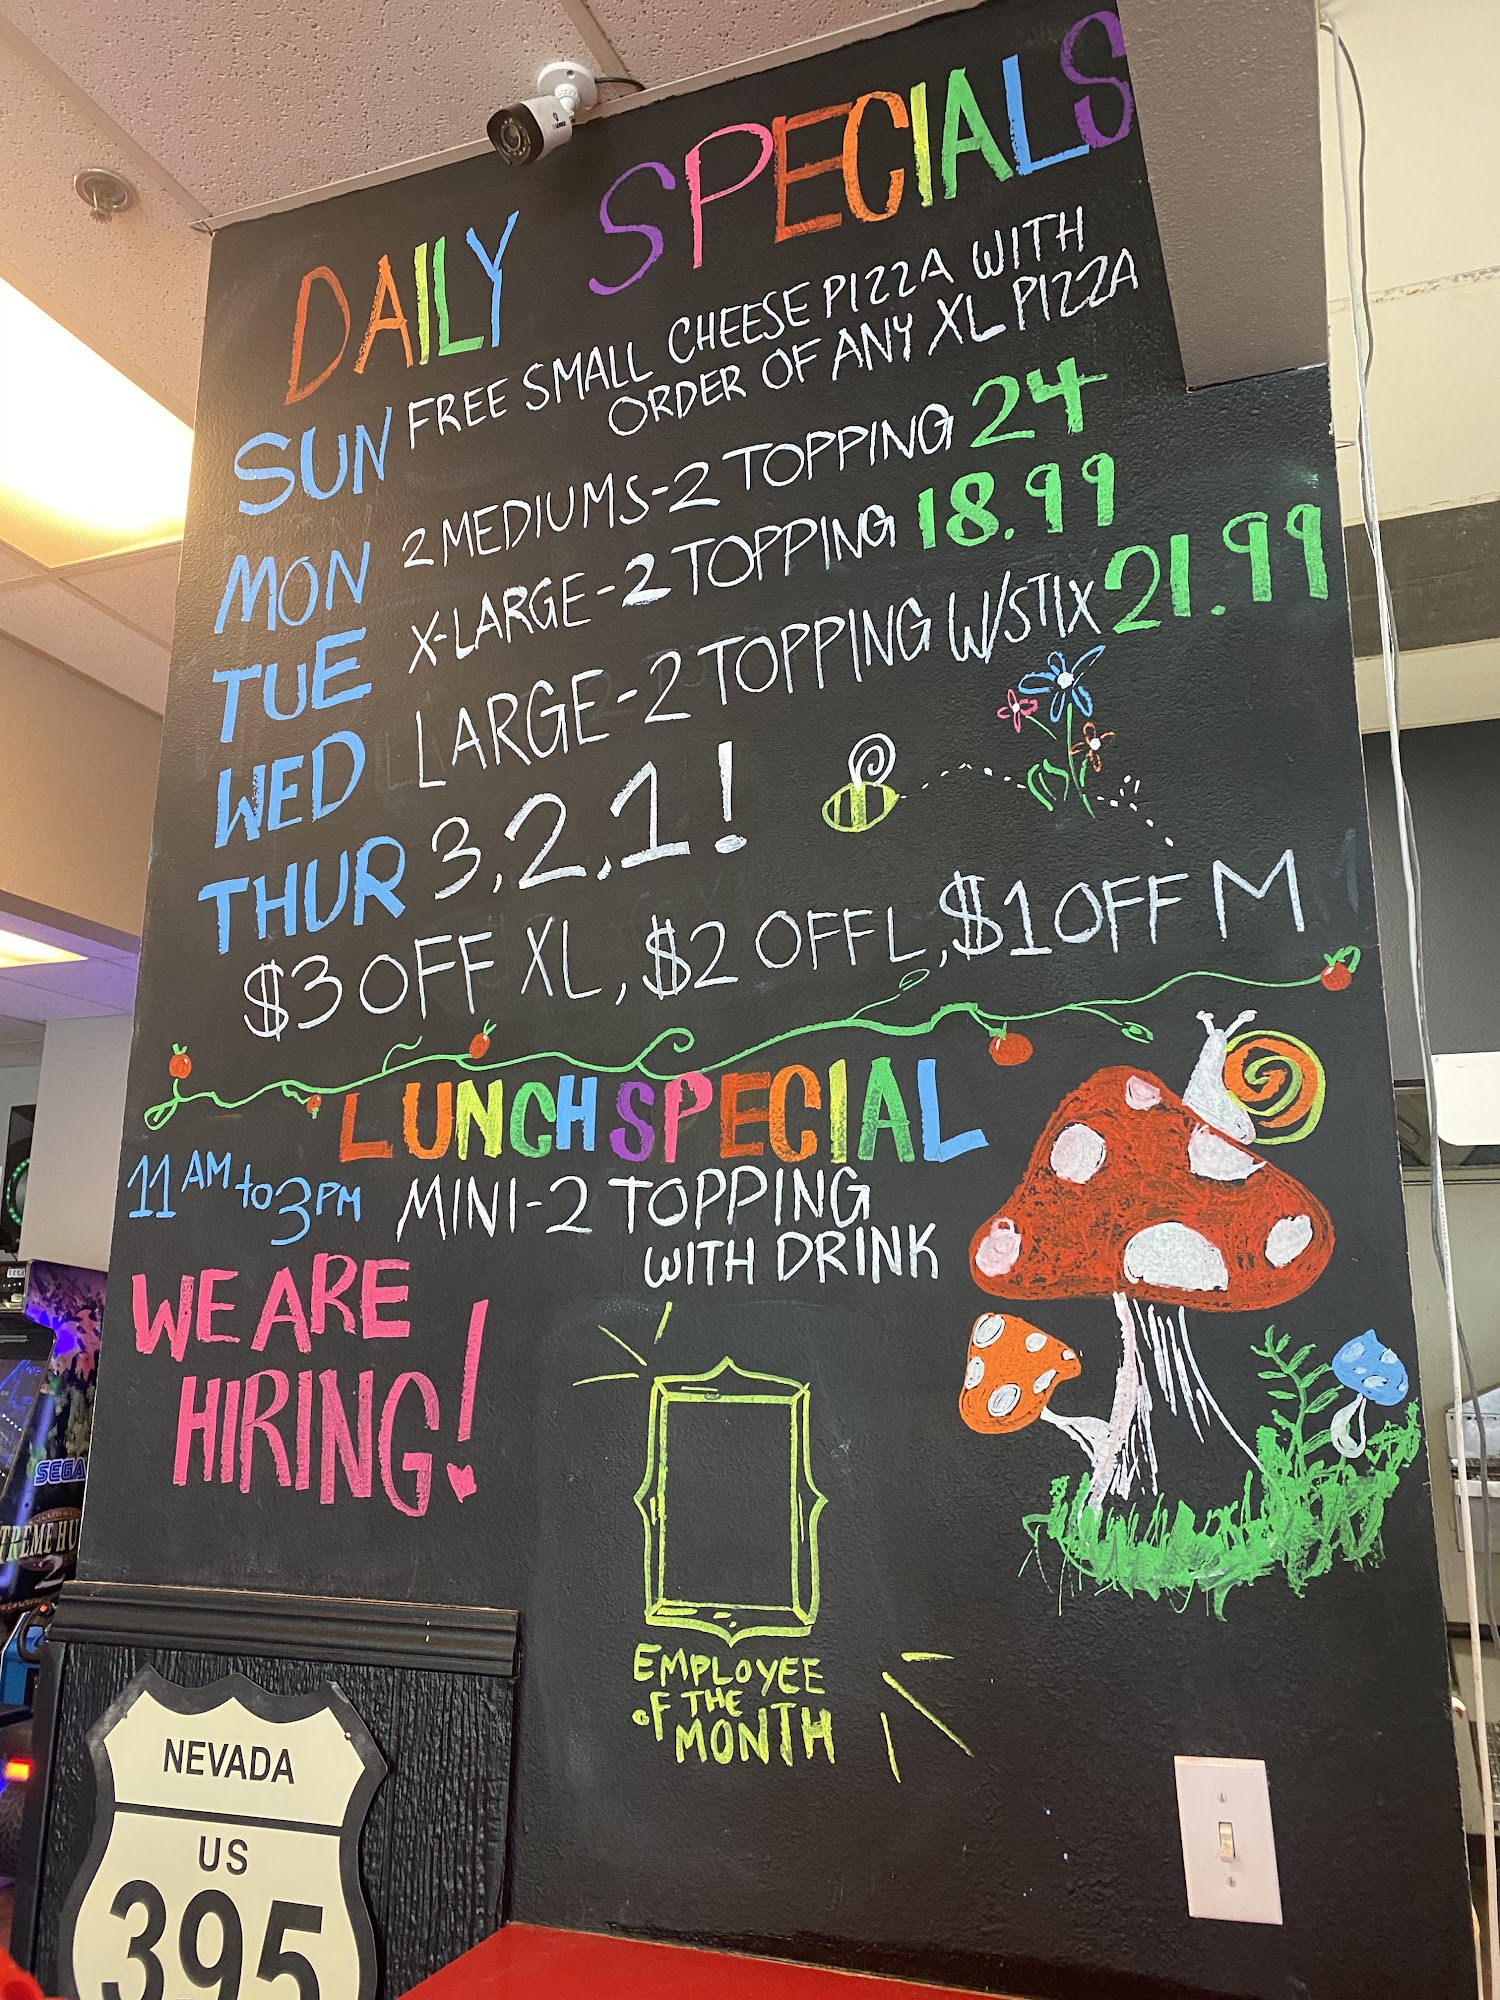 DAILY SPECIALS
SUN FREE SMALL CHEESE PIZZA WITH
ORDER OF ANY XL PIZZA
MON 2 MEDIUMS-2 TOPPING 24
TUE X-LARGE-2 TOPPING 18.99
WED LARGE-2 TOPPING W/STIX 21.99
THUR 3,2,1!
$3 OFF XL, $2 OFF L, $1 OFF M
LUNCH SPECIAL
11 AM to 3 PM MINI-2 TOPPING
WITH DRINK
WE ARE
HIRING!
EMPLOYEE
OF THE
MONTH
NEVADA
US
395
SEGA
SEGA
2